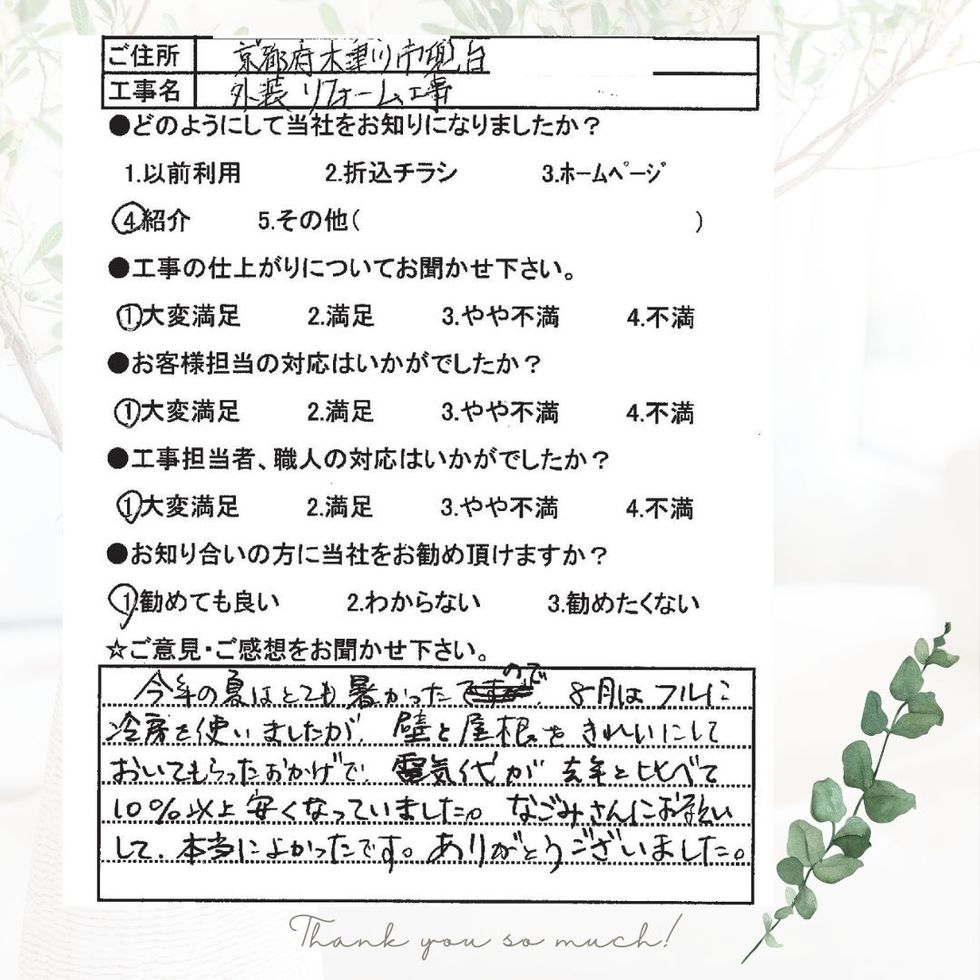 ご住所 京都府木津川市梅美台
工事名 外装リフォーム工事
●どのようにして当社をお知りになりましたか？
1.以前利用 2.折込チラシ 3.ホームページ
4.紹介 5.その他( )
●工事の仕上がりについてお聞かせ下さい。
1.大変満足 2.満足 3.やや不満 4.不満
●お客様担当の対応はいかがでしたか？
1.大変満足 2.満足 3.やや不満 4.不満
●工事担当者、職人の対応はいかがでしたか？
1.大変満足 2.満足 3.やや不満 4.不満
●お知り合いの方に当社をお勧め頂けますか？
1.勧めても良い 2.わからない 3.勧めたくない
☆ご意見・ご感想をお聞かせ下さい。
今年の夏はとても暑かったので、8月はフルに
冷房を使いましたが、壁と屋根をきれいにして
おいてもらったおかげで、電気代が去年と比べて
10%以上安くなっていました。なごみさんにお願い
して、本当によかったです。ありがとうございました。
Thank you so much!